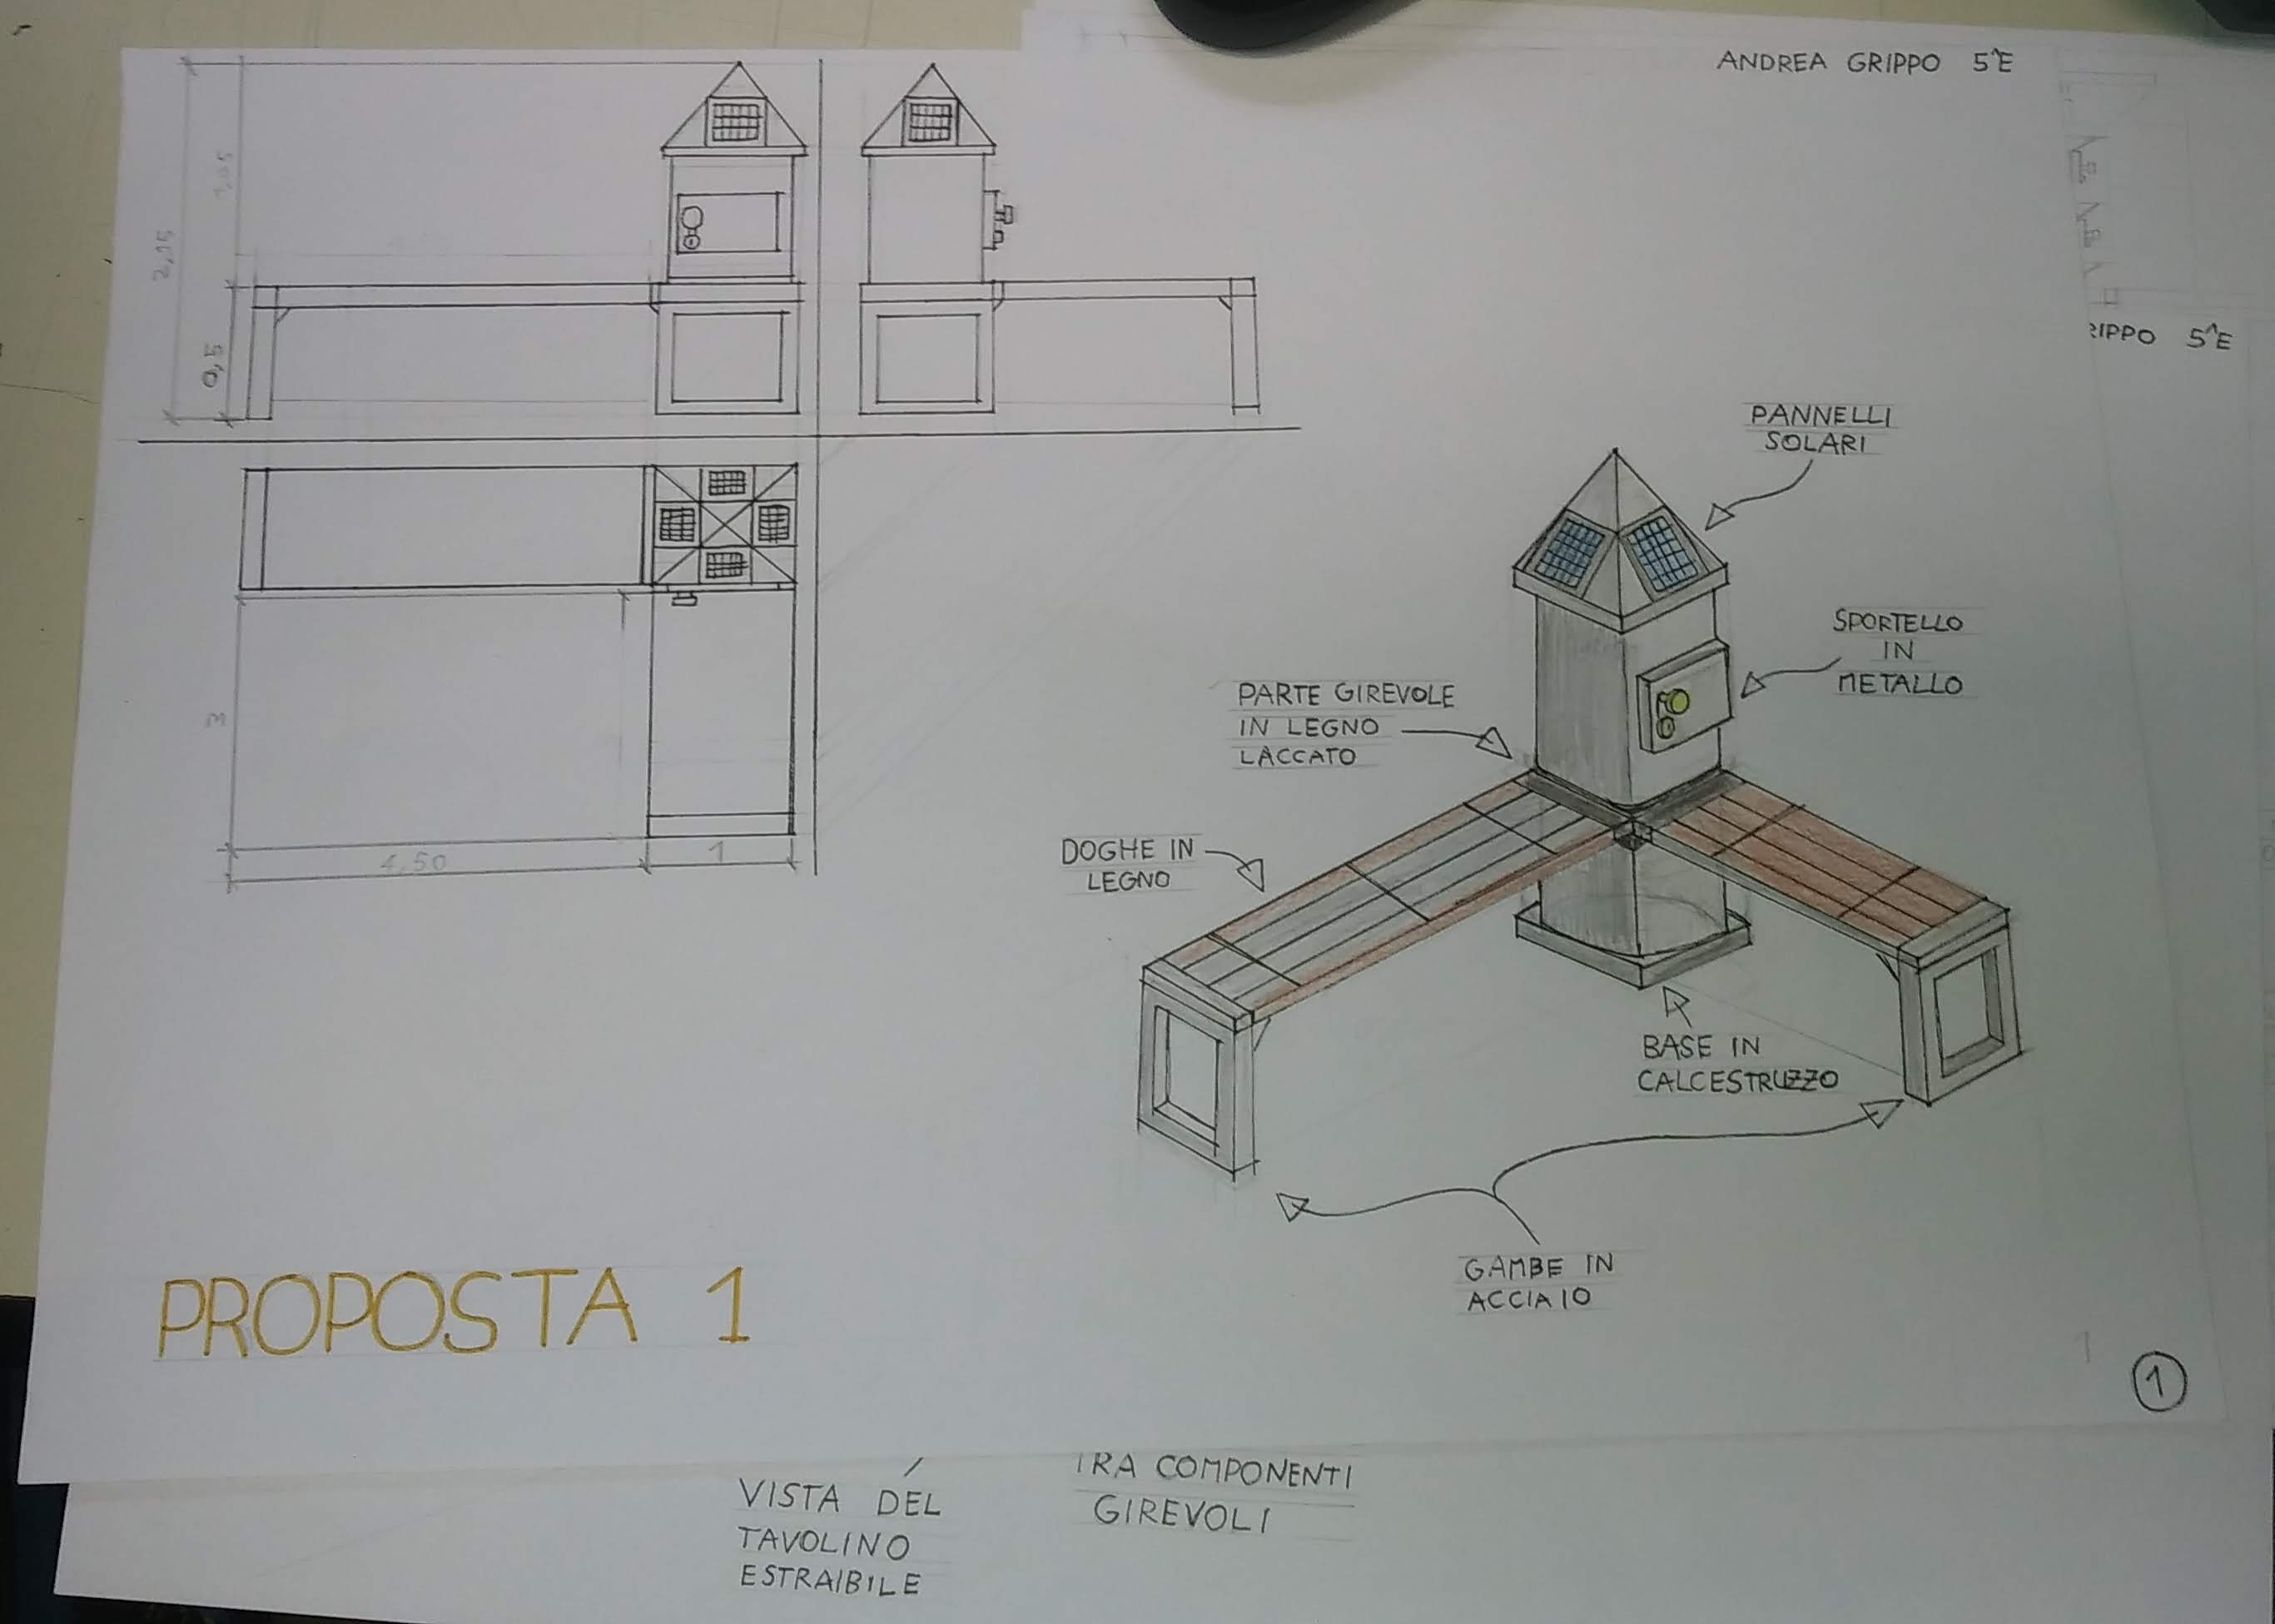 ANDREA GRIPPO 5^E
RIPPO 5^E
1,05
2,15
0,5
3
4,50
1
PANNELLI
SOLARI
SPORTELLO
IN
METALLO
PARTE GIREVOLE
IN LEGNO
LACCATO
DOGHE IN
LEGNO
BASE IN
CALCESTRUZZO
GAMBE IN
ACCIAIO
PROPOSTA 1
1
1
VISTA DEL
TAVOLINO
ESTRAIBILE
TRA COMPONENTI
GIREVOLI